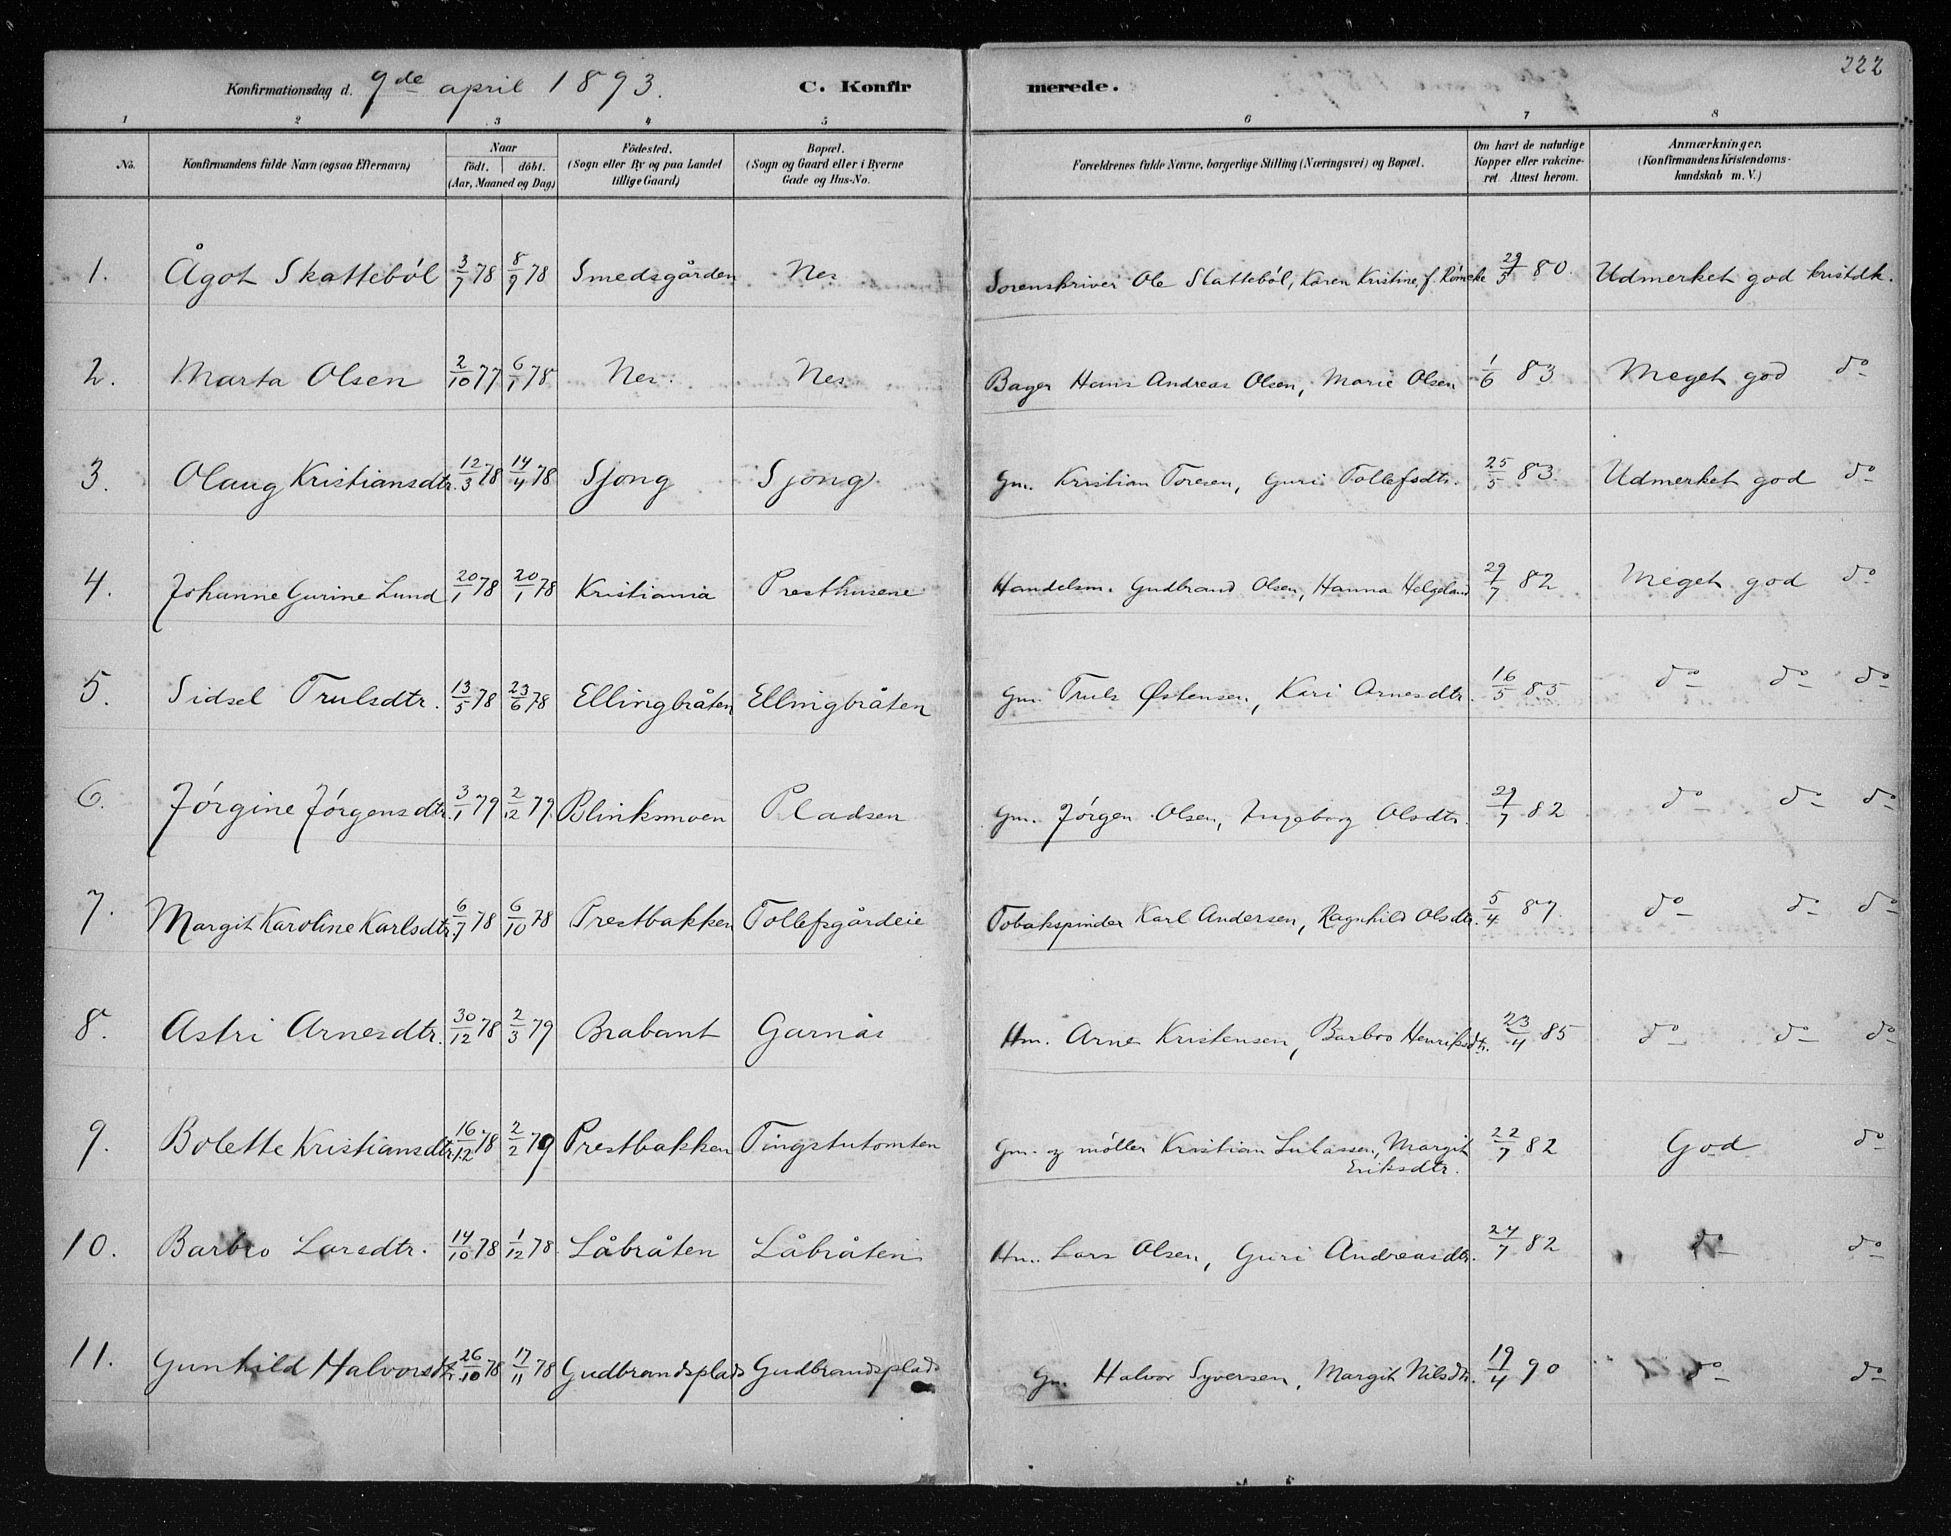 222
Konfirmationsdag d. 9de april 1893. C. Konfirmerede.
1 2 3 4 5 6 7 8
No. Konfirmandens fulde Navn (ogsaa Efternavn) Naar født. døbt. (Aar, Maaned og Dag) Fødested. (Sogn eller By og paa Landet tillige Gaard) Bopæl. (Sogn og Gaard eller i Byerne Gade og Hus-No. Forældrenes fulde Navne, borgerlige Stilling (Næringsvei) og Bopæl. Om havt de naturlige Kopper eller vakcineret Attest herom. Anmærkninger. (Konfirmandens Kristendomskundskab m. V.)
1. Ågot Skatteból 3/7 78 8/9 78 Smedsgården Nes Sorenskriver Ole Skatteból, Karen Kristine, f. 29/5 80. Udmerket god kristdk.
2. Marta Olsen 2/10 77 6/1 78 Nes. Nes Bager Hans Andreas Olsen, Marie Olsen 1/6 83 Meget god do
3. Olaug Kristiansdtr. 12/3 78 14/4 78 Sjong Sjong Gm. Kristian Toresen, Guri Tollefsdtr. 25/5 83 Udmerket god do
4. Johanne Gurine Lund 20/1 78 20/1 78 Kristiania Presthusene Handelsm. Gudbrand Olsen, Hanna Helgeland 29/7 82 Meget god do
5. Sidsel Trulsdtr. 13/5 78 23/6 78 Ellingbråten Ellingbråten Gm. Truls Østensen, Kari Arnesdtr. 16/5 85 do do do
6. Jórgine Jórgensdtr. 3/1 79 2/12 79 Blinksmoen Pladsen Gm. Jórgen Olsen, Ingeborg Olsdtr. 29/7 82 do do do
7. Margit Karoline Karlsdtr. 6/7 78 6/10 78 Prestbakken Tollefsgårdeie Tobakspinder Karl Andersen, Ragnhild Olsdtr. 5/4 87. do do do
8. Astri Arnesdtr. 30/12 78 2/3 79 Brabant Garnås Hm. Arne Kristensen, Barbro Henriksdtr. 23/4 85 do do do
9. Bolette Kristiansdtr. 16/12 78 2/2 79 Prestbakken Tingstutomten Gm. og móller Kristian Lukassen, Margit Eriksdtr. 22/7 82 God do
10. Barbro Larsdtr. 14/10 78 1/12 78 Låbråten Låbråten Hm. Lars Olsen, Guri Andreasdtr. 27/7 82 do do
11. Gunhild Halvorsdtr 26/10 78 17/11 78 Gudbrandsplads Gudbrandsplads Gm. Halvor Syversen, Margit Nilsdtr. 19/4 90 do do